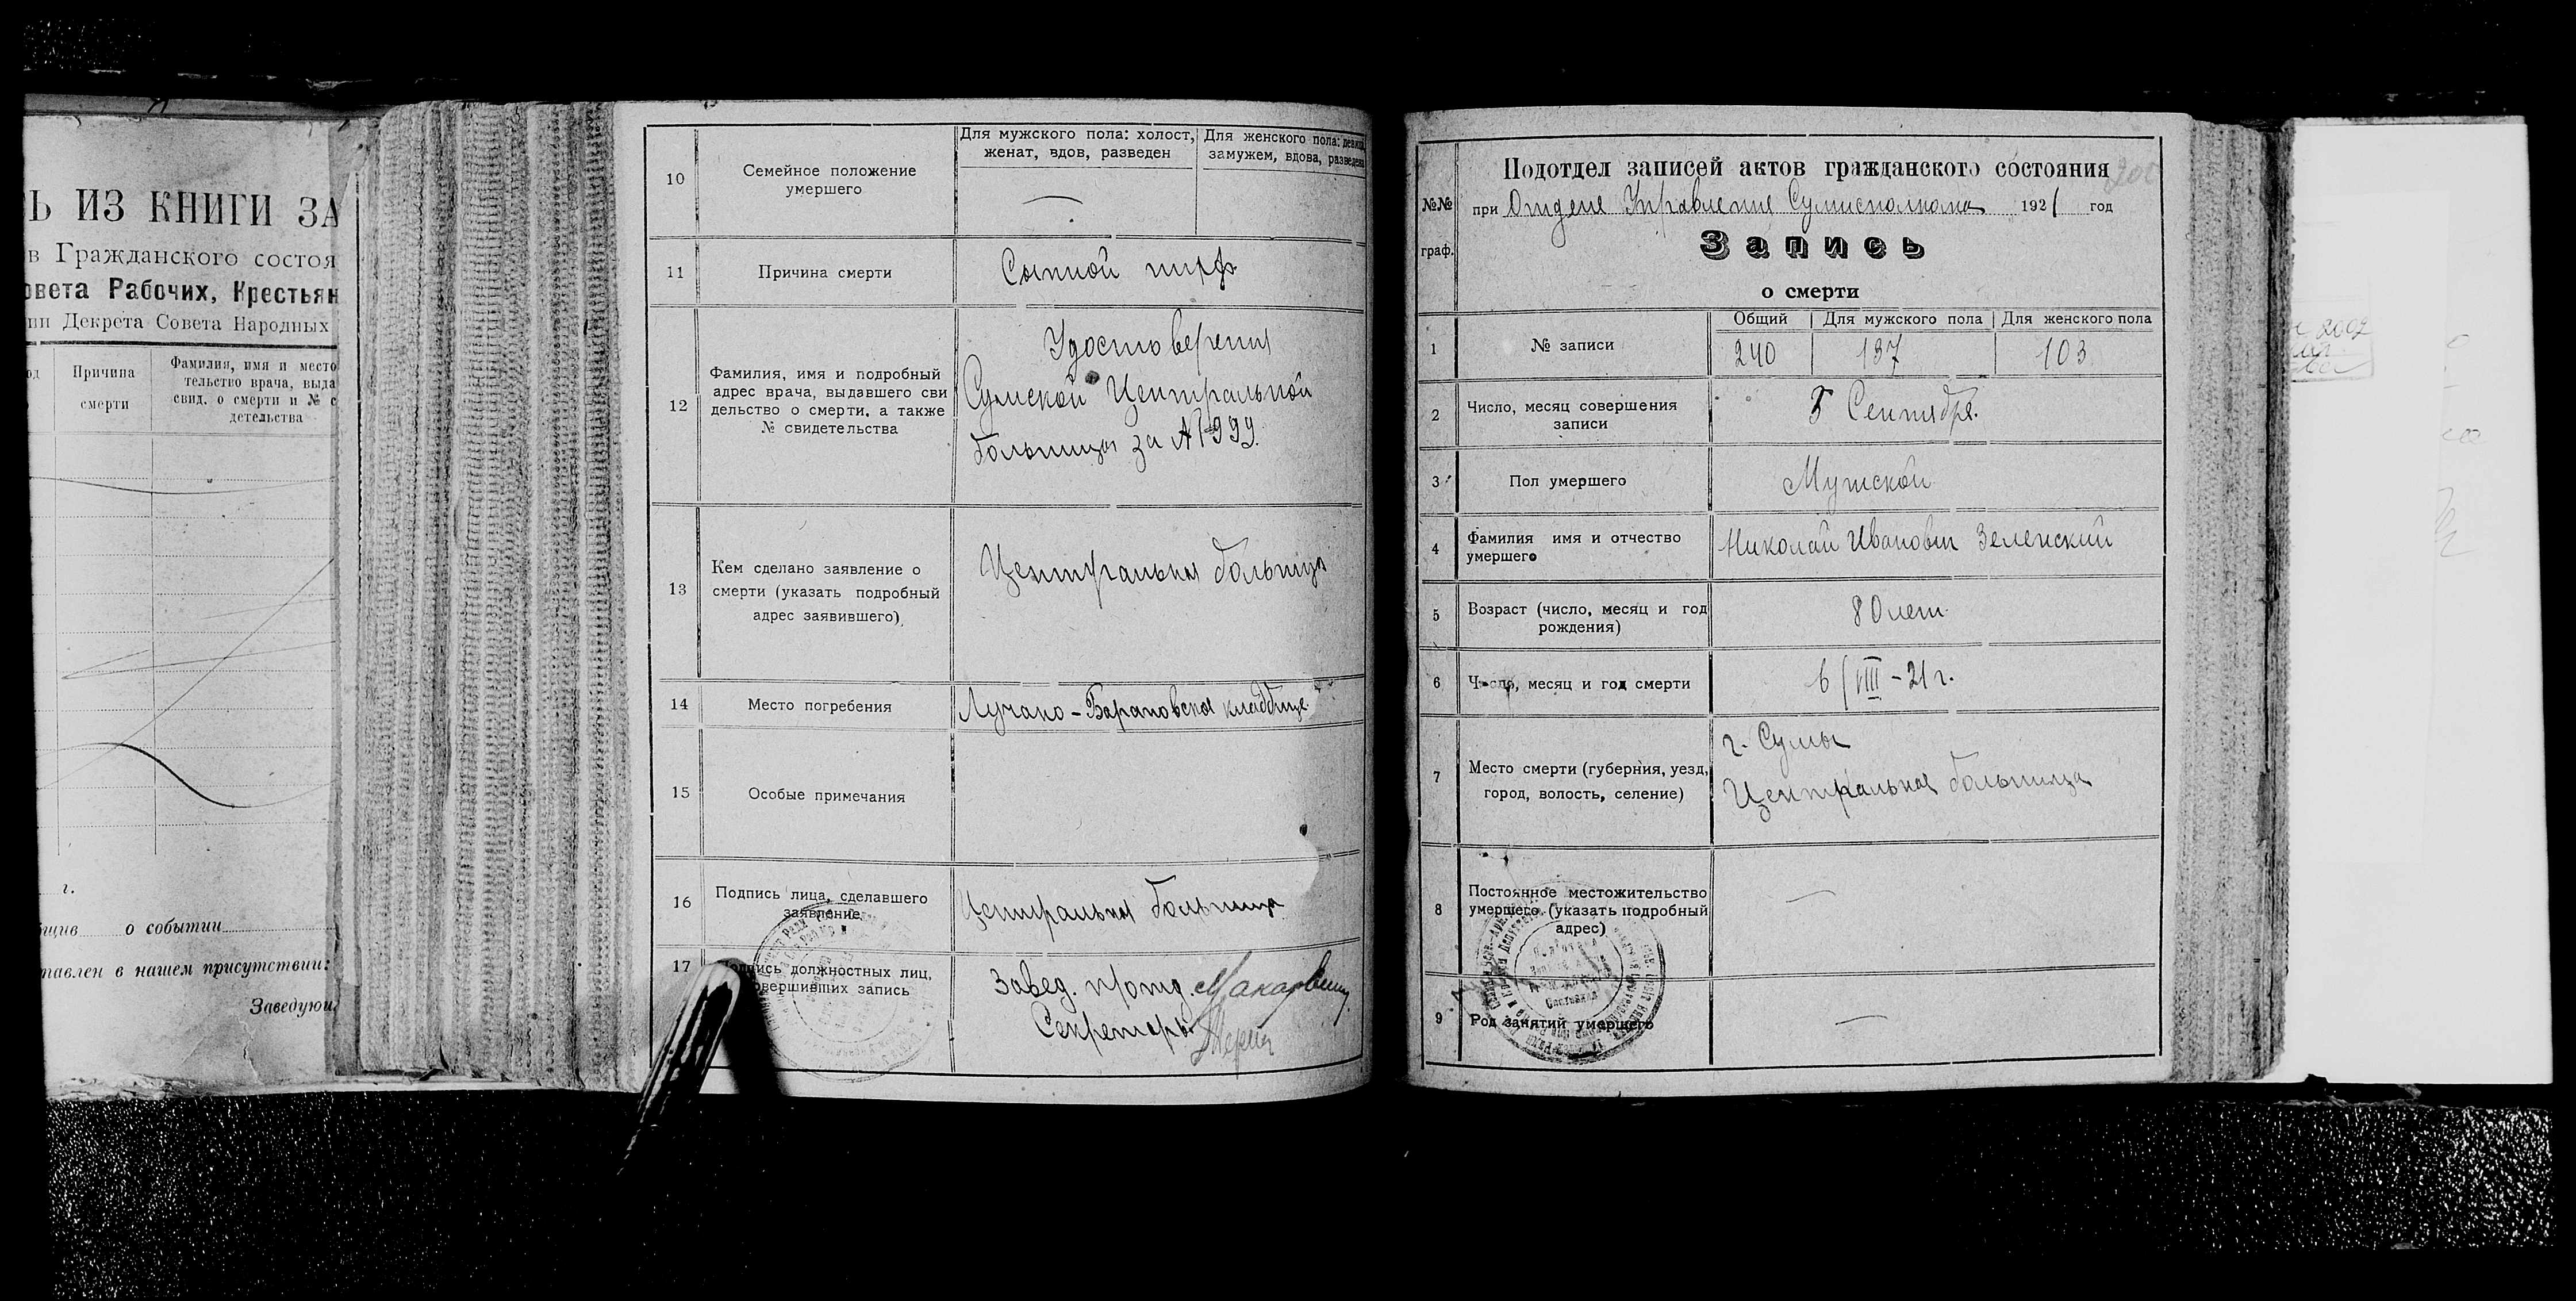 Ь ИЗ КНИГИ ЗА
в Гражданского состоя
овета Рабочих, Крестьян
ии Декрета Совета Народных
Причина
смерти
Фамилия, имя и место
тельство врача, выда
свид. о смерти и № с
детельства
г.
бщив о событии
тавлен в нашем присутствии:
Заведующ
10
Семейное положение
умершего
Для мужского пола: холост,
женат, вдов, разведен
Для женского пола: девица,
замужем, вдова, разведена
—
11
Причина смерти
Сыпной тиф
12
Фамилия, имя и подробный
адрес врача, выдавшего сви
дельство о смерти, а также
№ свидетельства
Удостоверения
Сумской Центральной
больницы за № 999.
13
Кем сделано заявление о
смерти (указать подробный
адрес заявившего)
Центральная больница
14
Место погребения
Лучано-Барановское кладбище
15
Особые примечания
16
Подпись лица, сделавшего
заявление
Центральная больница
17
Подпись должностных лиц,
совершивших запись
Завед. п/отд.
Секретарь
Подотдел записей актов гражданского состояния
№№
граф.
при Отделе Управления Сумисполкома 1921 год
Запись
о смерти
1
№ записи
Общий
Для мужского пола
Для женского пола
240
137
103
2
Число, месяц совершения
записи
Сентября.
3
Пол умершего
Мужской
4
Фамилия имя и отчество
умершего
Николай Иванович Зеленский
5
Возраст (число, месяц и год
рождения)
80 лет
6
Число, месяц и год смерти
6/VIII-21 г.
7
Место смерти (губерния, уезд,
город, волость, селение)
г. Сумы
Центральная больница
8
Постоянное местожительство
умершего (указать подробный
адрес)
—
9
Род занятий умершего
—
2002